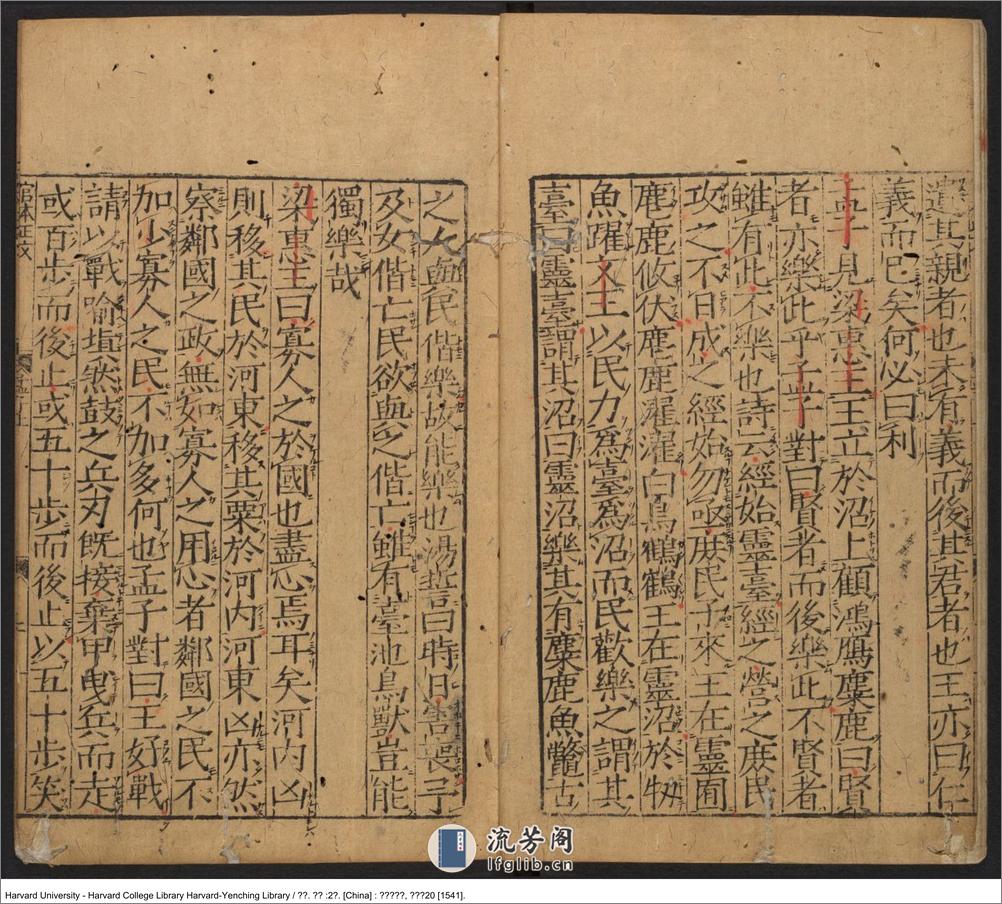 遺其親者也未有義而後其君者也王亦曰仁
義而巳矣何必曰利
孟子見梁惠王王立於沼上顧鴻鴈麋鹿曰賢
者亦樂此乎孟子對曰賢者而後樂此不賢者
雖有此不樂也詩云經始靈臺經之營之庶民
攻之不日成之經始勿亟庶民子來王在靈囿
麀鹿攸伏麀鹿濯濯白鳥鶴鶴王在靈沼於牣
魚躍文王以民力爲臺爲沼而民歡樂之謂其
臺曰靈臺謂其沼曰靈沼樂其有麋鹿魚鼈古
之人與民偕樂故能樂也湯誓曰時日害喪予
及女偕亡民欲與之偕亡雖有臺池鳥獸豈能
獨樂哉
梁惠王曰寡人之於國也盡心焉耳矣河内凶
則移其民於河東移其粟於河内河東凶亦然
察鄰國之政無如寡人之用心者鄰國之民不
加少寡人之民不加多何也孟子對曰王好戰
請以戰喻填然鼓之兵刃旣接棄甲曳兵而走
或百步而後止或五十步而後止以五十步笑
流芳阁
lfglib.cn
Harvard University - Harvard College Library Harvard-Yenching Library / ??. ?? :2?. [China] : ?????, ???20 [1541].